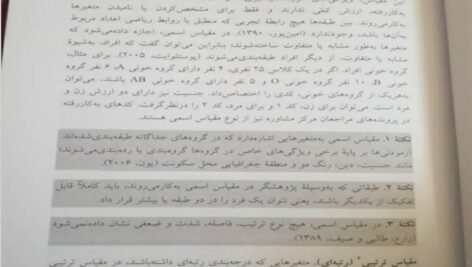 به‌کاررفته، ارزش کمّی ندارند و فقط برای مشخص‌کردن یا نامیدن متغیرها
به‌کارمی‌روند. بین طبقه‌ها هیچ رابطهٔ تجربی که منطبق با روابط ریاضی اعداد مربوط
به‌آن‌ها باشد، وجودندارد (امین‌پور، ۱۳۹۰). در مقیاس اسمی، اجازه داده‌می‌شود که
متغیرها به‌طور مشابه یا متفاوت ساخته‌شوند؛ بنابراین می‌توان گفت که افراد، به‌شیوهٔ
مشابه یا متفاوت، از دیگر افراد طبقه‌بندی‌می‌شوند (پوستلوایت، ۲۰۰۵). برای مثال،
گروه خونی افراد. اگر در یک کلاس ۲۵ نفری، ۴ نفر دارای گروه خونی A، ۶ نفر گروه
خونی B، ۱۰ نفر گروه خونی O و ۵ نفر دارای گروه خونی AB باشند، می‌توان
به‌هریک از گروه‌های خونی، کدی را اختصاص‌داد. جنسیت نیز دارای دو ارزش زن و
مرد است. می‌توان برای زن، کد ۱ و برای مرد، کد ۲ را درنظرگرفت. کدهای به‌کاررفته
در پرونده‌های مراجعان مرکز مشاوره نیز از نوع مقیاس اسمی هستند.
نکتهٔ ۱. مقیاس اسمی به‌متغیرهایی اشاره‌دارد که در گروه‌های جداگانه طبقه‌بندی‌شده‌اند.
آزمودنی‌ها بر پایهٔ برخی ویژگی‌های خاص در گروه‌ها گروه‌بندی یا رده‌بندی‌می‌شوند؛
مانند جنسیت، دین، رنگ مو و منطقهٔ جغرافیایی محل سکونت (یون، ۲۰۰۶).
نکتهٔ ۲. طبقاتی که به‌وسیلهٔ پژوهشگر در مقیاس اسمی به‌کارمی‌روند، باید کاملاً قابل
تفکیک از یکدیگر باشند، یعنی نتوان یک فرد را در دو طبقه یا بیشتر قرار داد.
نکتهٔ ۳. در مقیاس اسمی، هیچ نوع ترتیب، فاصله، شدت و ضعفی نشان داده‌نمی‌شود
(زارع، طالبی و صیف، ۱۳۸۹).
مقیاس ترتیبی (رتبه‌ای). متغیرهایی که درجه‌بندی رتبه‌ای داشته‌باشند، در مقیاس ترتیبی